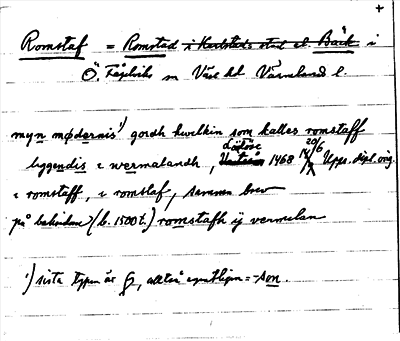 +
Romstaf = Romstad i Karlstads stad el. Bäck i
Ö. Fågelviks sn Väse hd Värmland l.
myn mødernis¹⁾ gordh hwilkin som kalles romstaff
liggendis i wermalandh, Lödöse 1468 20/6 Upps. dipl. orig.
i romstaff, i romstaf, samma brev
på baksidan (b. 1500 t.) romstafh ij vermelan
¹⁾ sista typen är, alltså egentligen = -son.